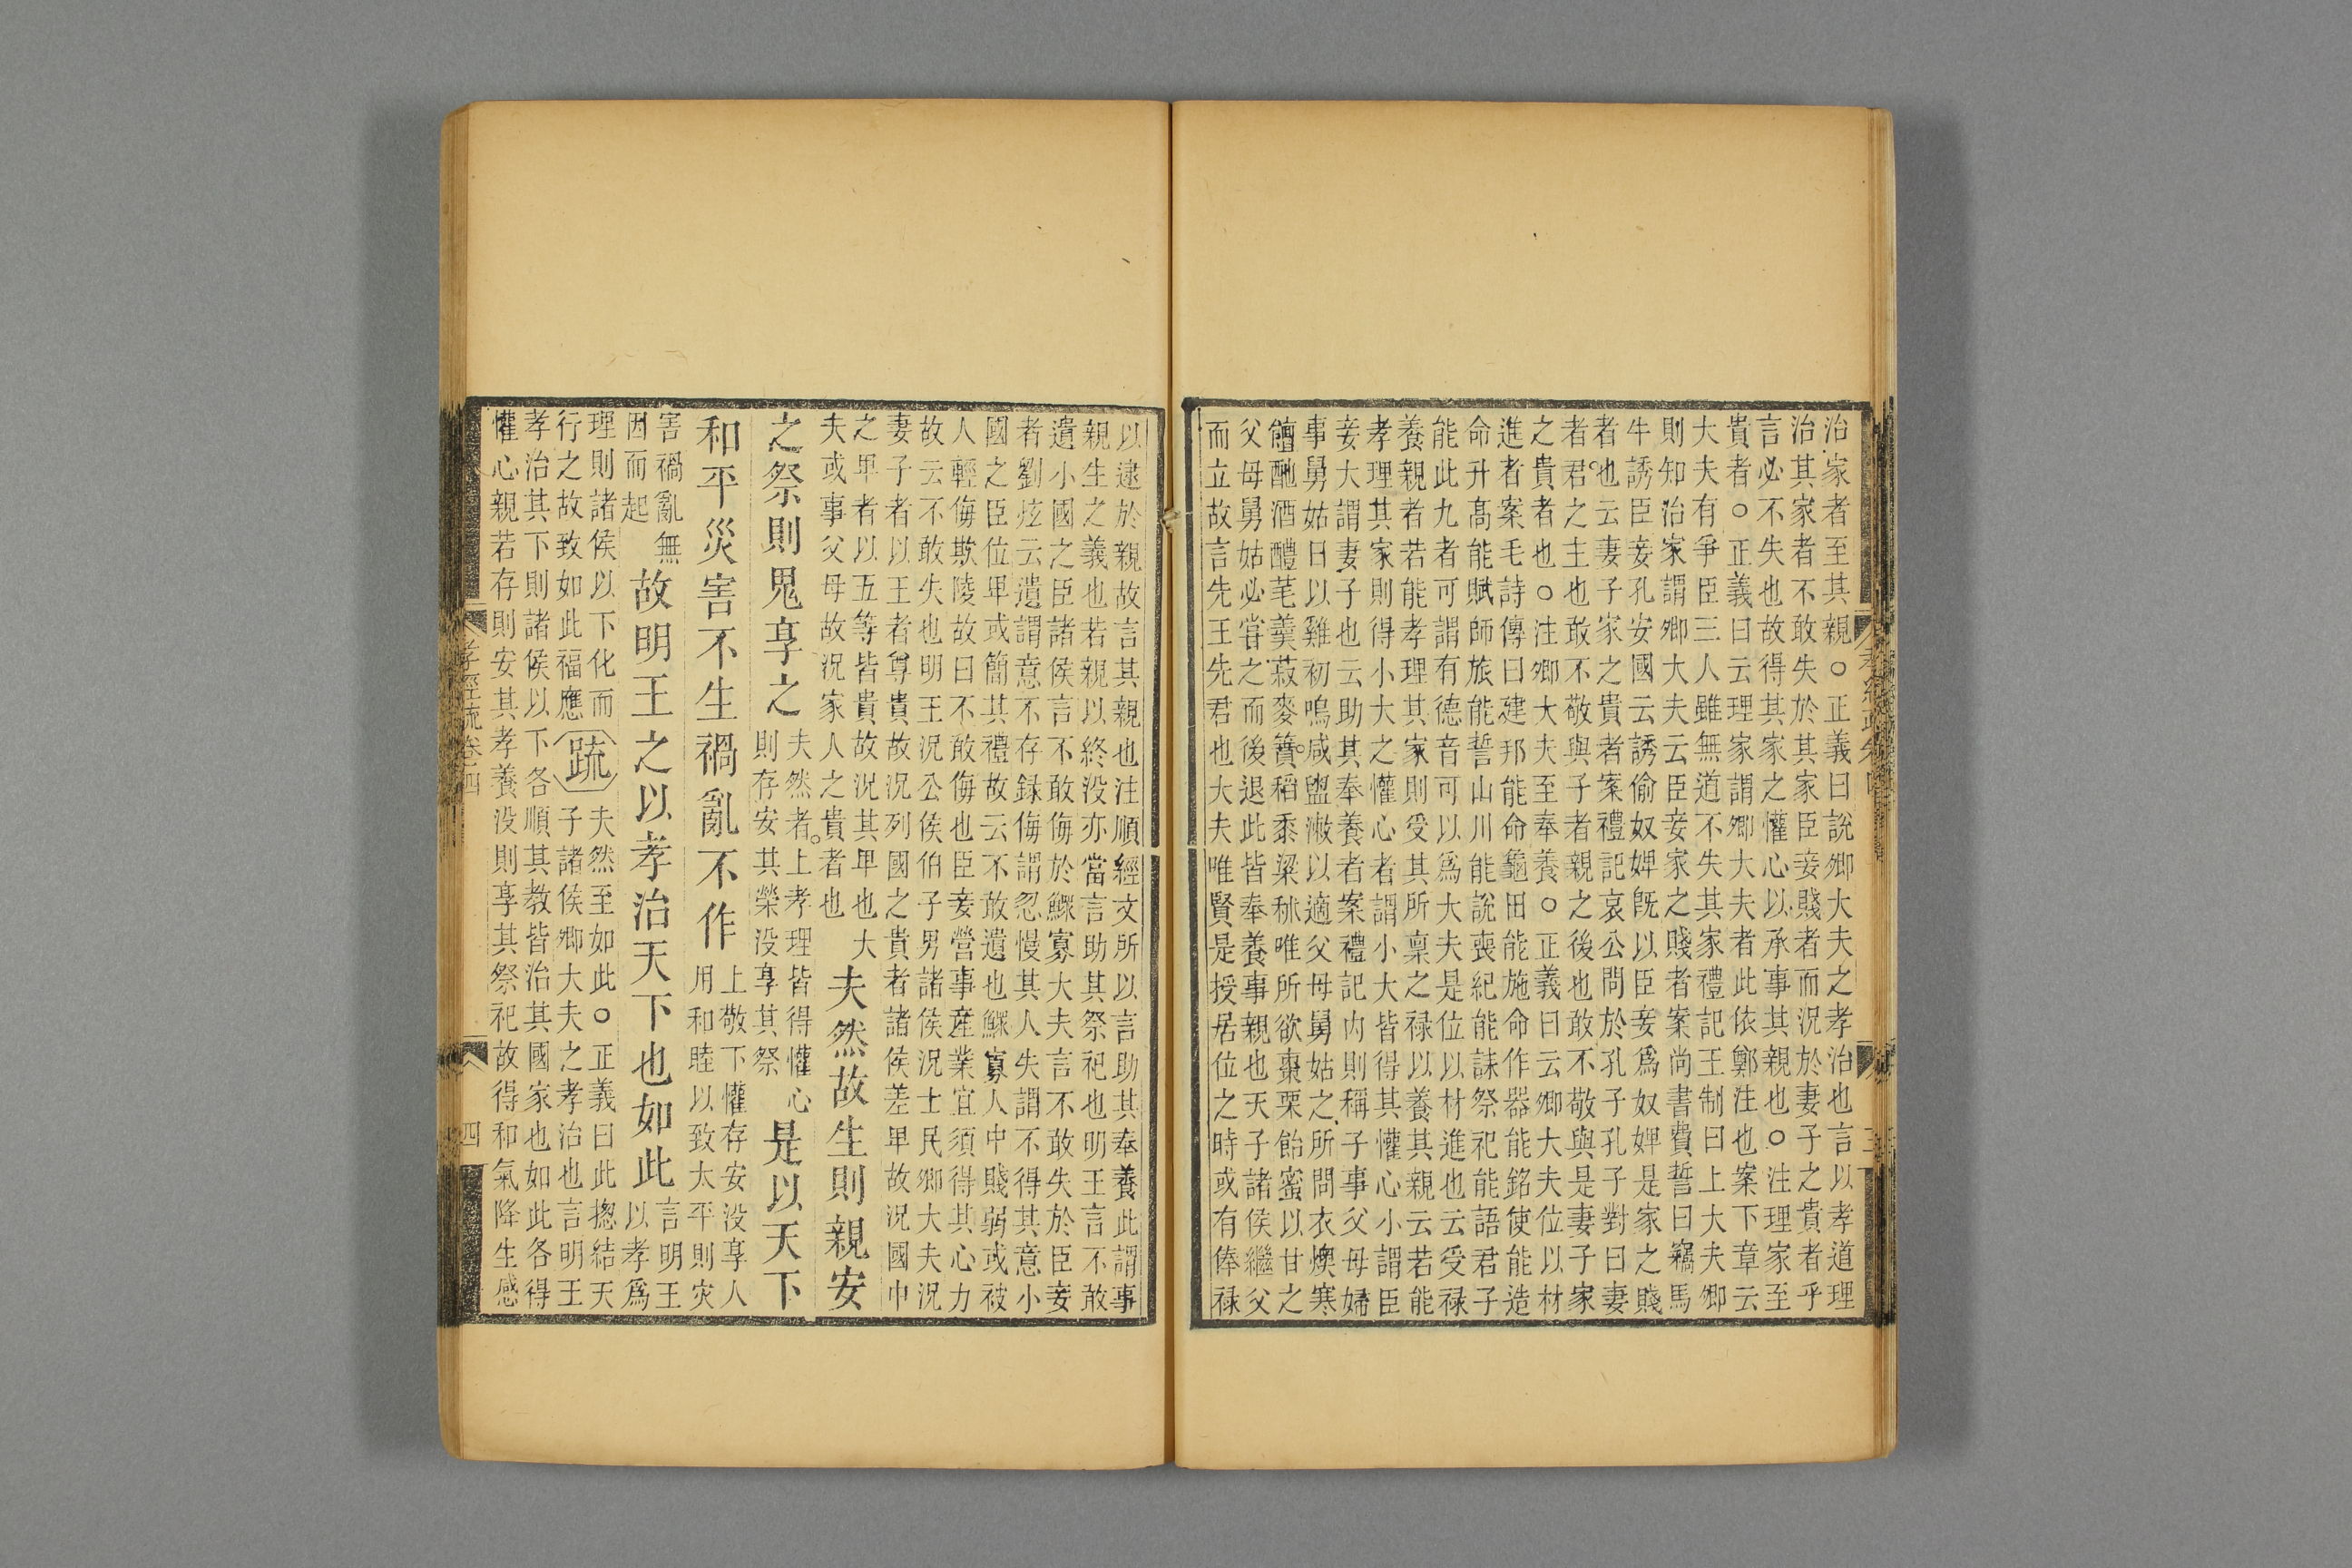 治家者至其親○正義曰說卿大夫之孝治也言以孝道理
治其家者不敢失於其家臣妾賤者而況於妻子之貴者乎
言必不失也故得其家之懽心以承事其親也○注理家至
貴者○正義曰云理家謂卿大夫者此依鄭注也案下章云
大夫有爭臣三人雖無道不失其家禮記王制曰上大夫卿
則知治家謂卿大夫云臣妾家之賤者案尚書費誓曰竊馬
牛誘臣妾孔安國云誘偷奴婢旣以臣妾爲奴婢是家之賤
者也云妻子家之貴者案禮記哀公問於孔子孔子對曰妻
者君之主也敢不敬與子者親之後也敢不敬與是妻子家
之貴者也○注卿大夫至奉養○正義曰云卿大夫位以材
進者案毛詩傳曰建邦能命龜田能施命作器能銘使能造
命升髙能賦師旅能誓山川能說喪紀能誄祭祀能語君子
能此九者可謂有德音可以爲大夫是位以材進也云受禄
養親者若能孝理其家則受其所稟之禄以養其親云若能
孝理其家則得小大之懽心者謂小大皆得其懽心小謂臣
妾大謂妻子也云助其奉養者案禮記内則稱子事父母婦
事舅姑日以雞初鳴咸盥漱以適父母舅姑之所問衣燠寒
饘酏酒醴芼羹菽麥蕡稻黍粱秫唯所欲棗栗飴蜜以甘之
父母舅姑必甞之而後退此皆奉養事親也天子諸侯繼父
而立故言先王先君也大夫唯賢是授居位之時或有俸禄
以逮於親故言其親也注順經文所以言助其奉養此謂事
親生之義也若親以終没亦當言助其祭祀也明王言不敢
遺小國之臣諸侯言不敢侮於鰥寡大夫言不敢失於臣妾
者劉炫云遺謂意不存録侮謂忽慢其人失謂不得其意小
國之臣位卑或簡其禮故云不敢遺也鰥寡人中賤弱或被
人輕侮欺陵故曰不敢侮也臣妾營事產業宜須得其心力
故云不敢失也明王況公侯伯子男諸侯況士民卿大夫況
妻子者以王者尊貴故況列國之貴者諸侯差卑故況國中
之卑者以五等皆貴故況其卑也大
夫或事父母故況家人之貴者也
夫然故生則親安
之祭則鬼享之
夫然者上孝理皆得懽心
則存安其榮没享其祭
是以天下
和平災害不生禍亂不作
上敬下懽存安没享人
用和睦以致太平則灾
害禍亂無
因而起
故明王之以孝治天下也如此
言明王
以孝爲
理則諸侯以下化而
行之故致如此福應
疏
夫然至如此○正義曰此捴結天
子諸侯卿大夫之孝治也言明王
孝治其下則諸侯以下各順其教皆治其國家也如此各得
懽心親若存則安其孝養没則享其祭祀故得和氣降生感
孝經疏卷四
四